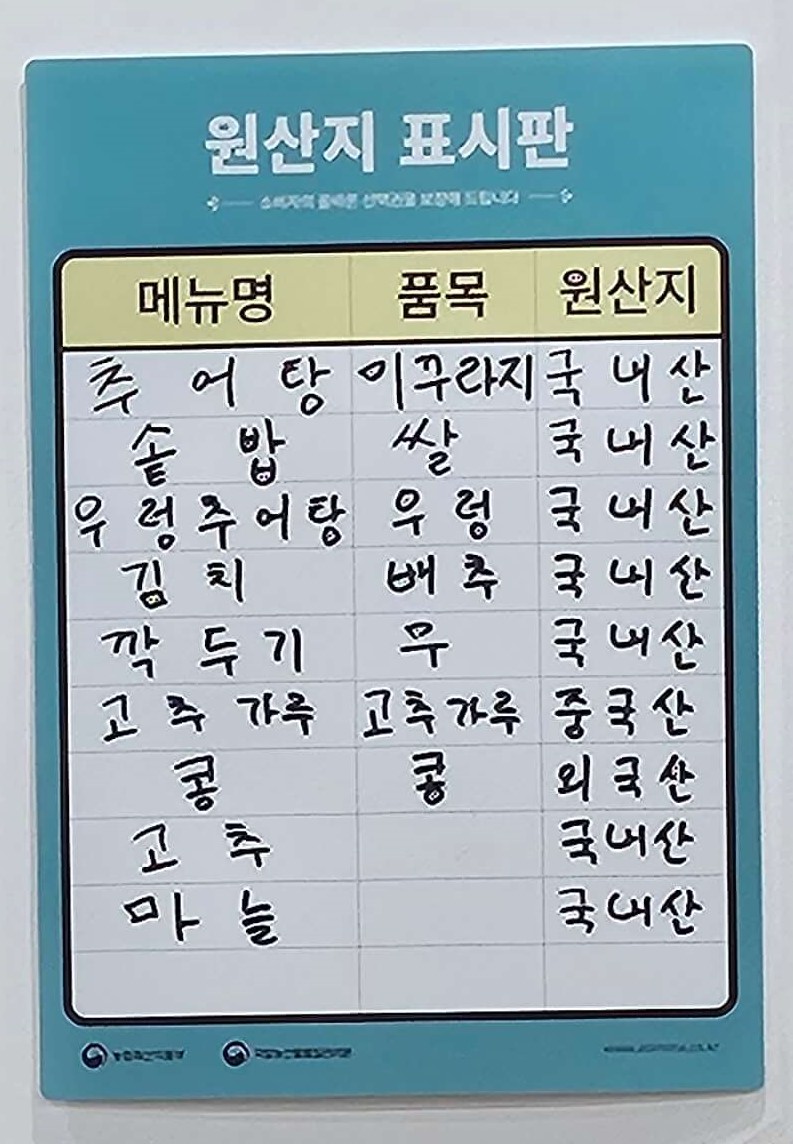 원산지 표시판
소비자의 올바른 선택권을 보장해 드립니다
메뉴명 품목 원산지
추어탕 미꾸라지 국내산
솥밥 쌀 국내산
우렁추어탕 우렁 국내산
김치 배추 국내산
깍두기 무 국내산
고추가루 고추가루 중국산
콩 콩 외국산
고추 국내산
마늘 국내산
농림축산식품부 국립농산물품질관리원